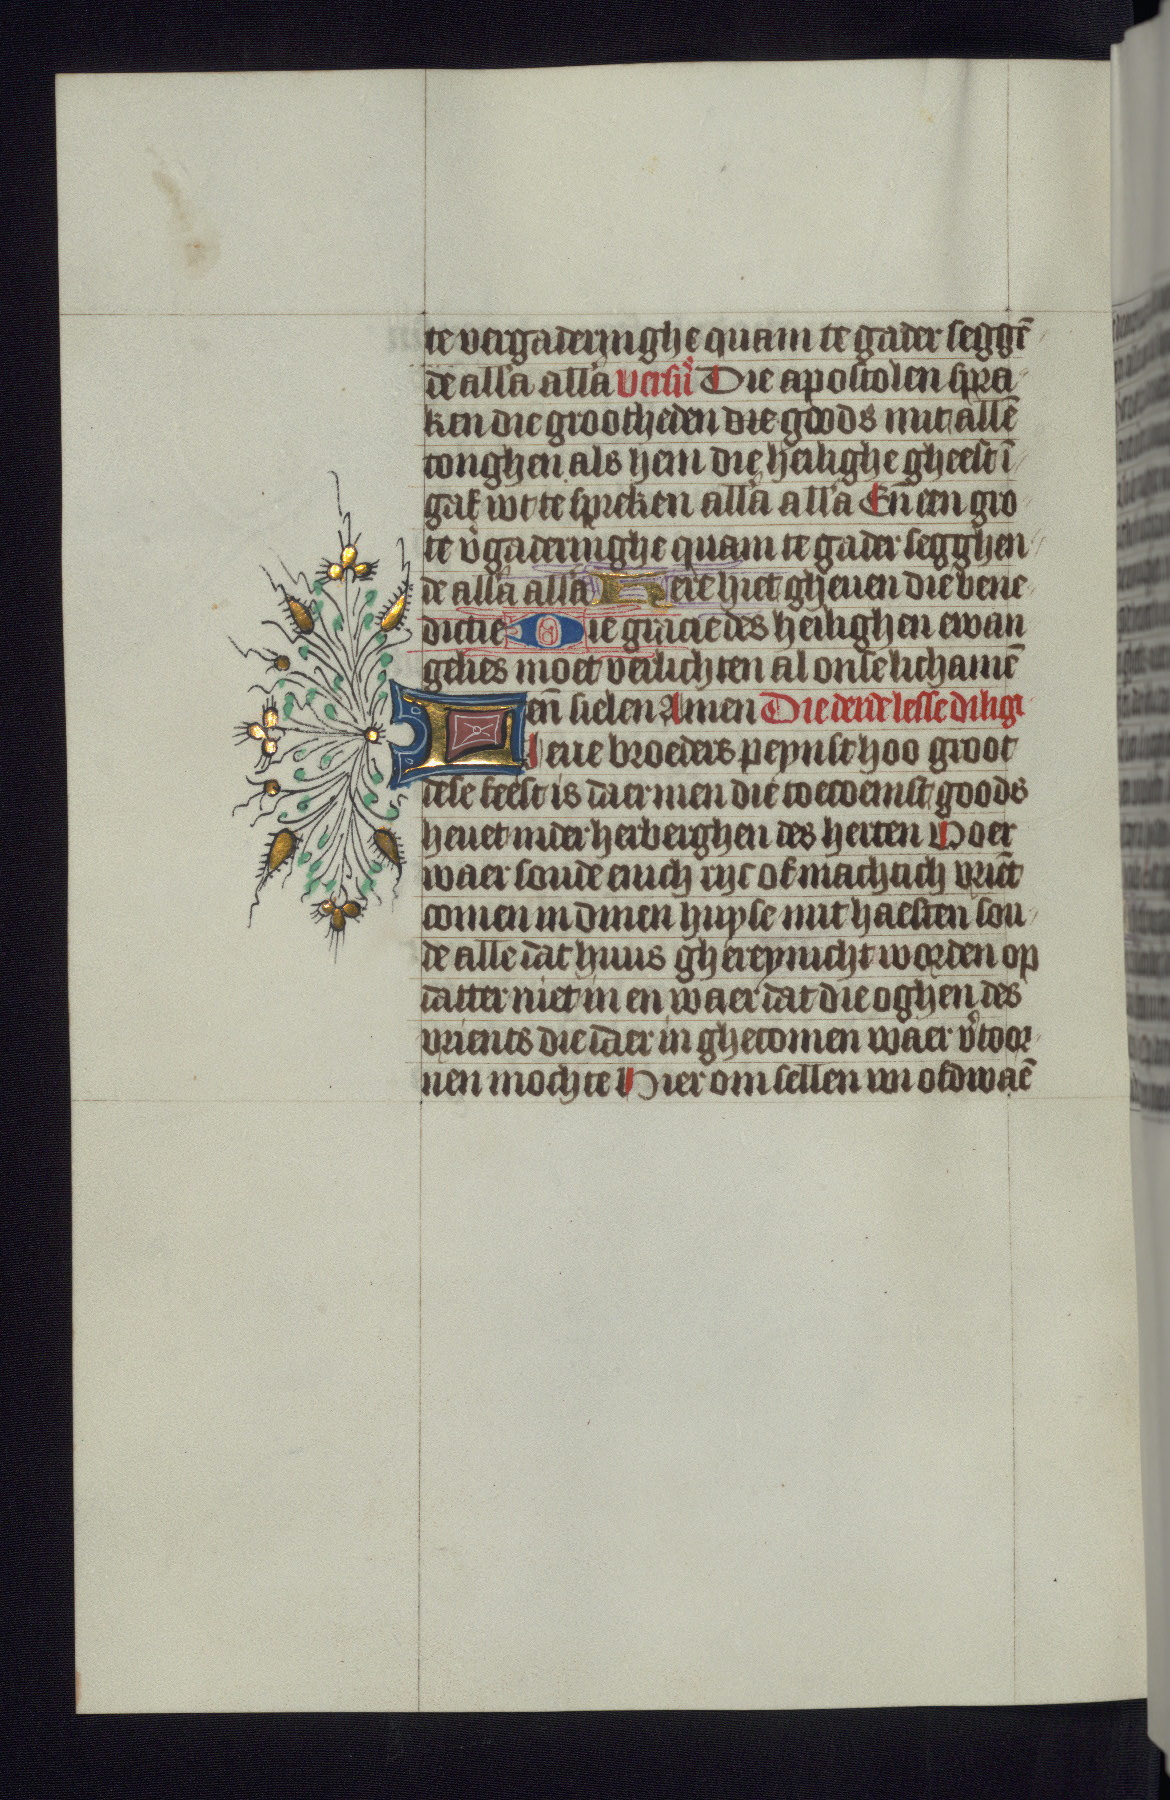 te vergaderinghe quam te gader seggē
de all'a all'a versu᷒ Die apostolen spra
ken die grootheden die goods mit allē
tonghen als hem die heilighe gheest ī
gaf wt te spreken all'a all'a Eñ een gro
te v̉gaderinghe quam te gader segghen
de all'a all'a Here hiet gheuen die bene
dictie Die gracie des heilighen ewan
gelies moet verlichten al onse lichamē
eñ sielen Amen Die derde lesse diligi
Lieue broeders peynst hoo groot
dese feest is daer men die toecoemst goods
heuet inder herberghen des herten Voer
waer soude enich rijc of machtich vriēt
comen in dinen huyse mit haesten sou
de alle dat huus ghereynicht worden op
datter niet in en waer dat die oghen des
vrients die daer in ghecomen waer v̉toor
nen mochte Hier om sellen wi ofdwaē